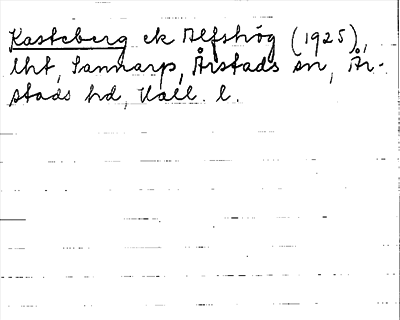 Kasteberg ek Alfshög (1925),
lht, Sannarp, Årstads sn, År-
stads hd, Hall. l.